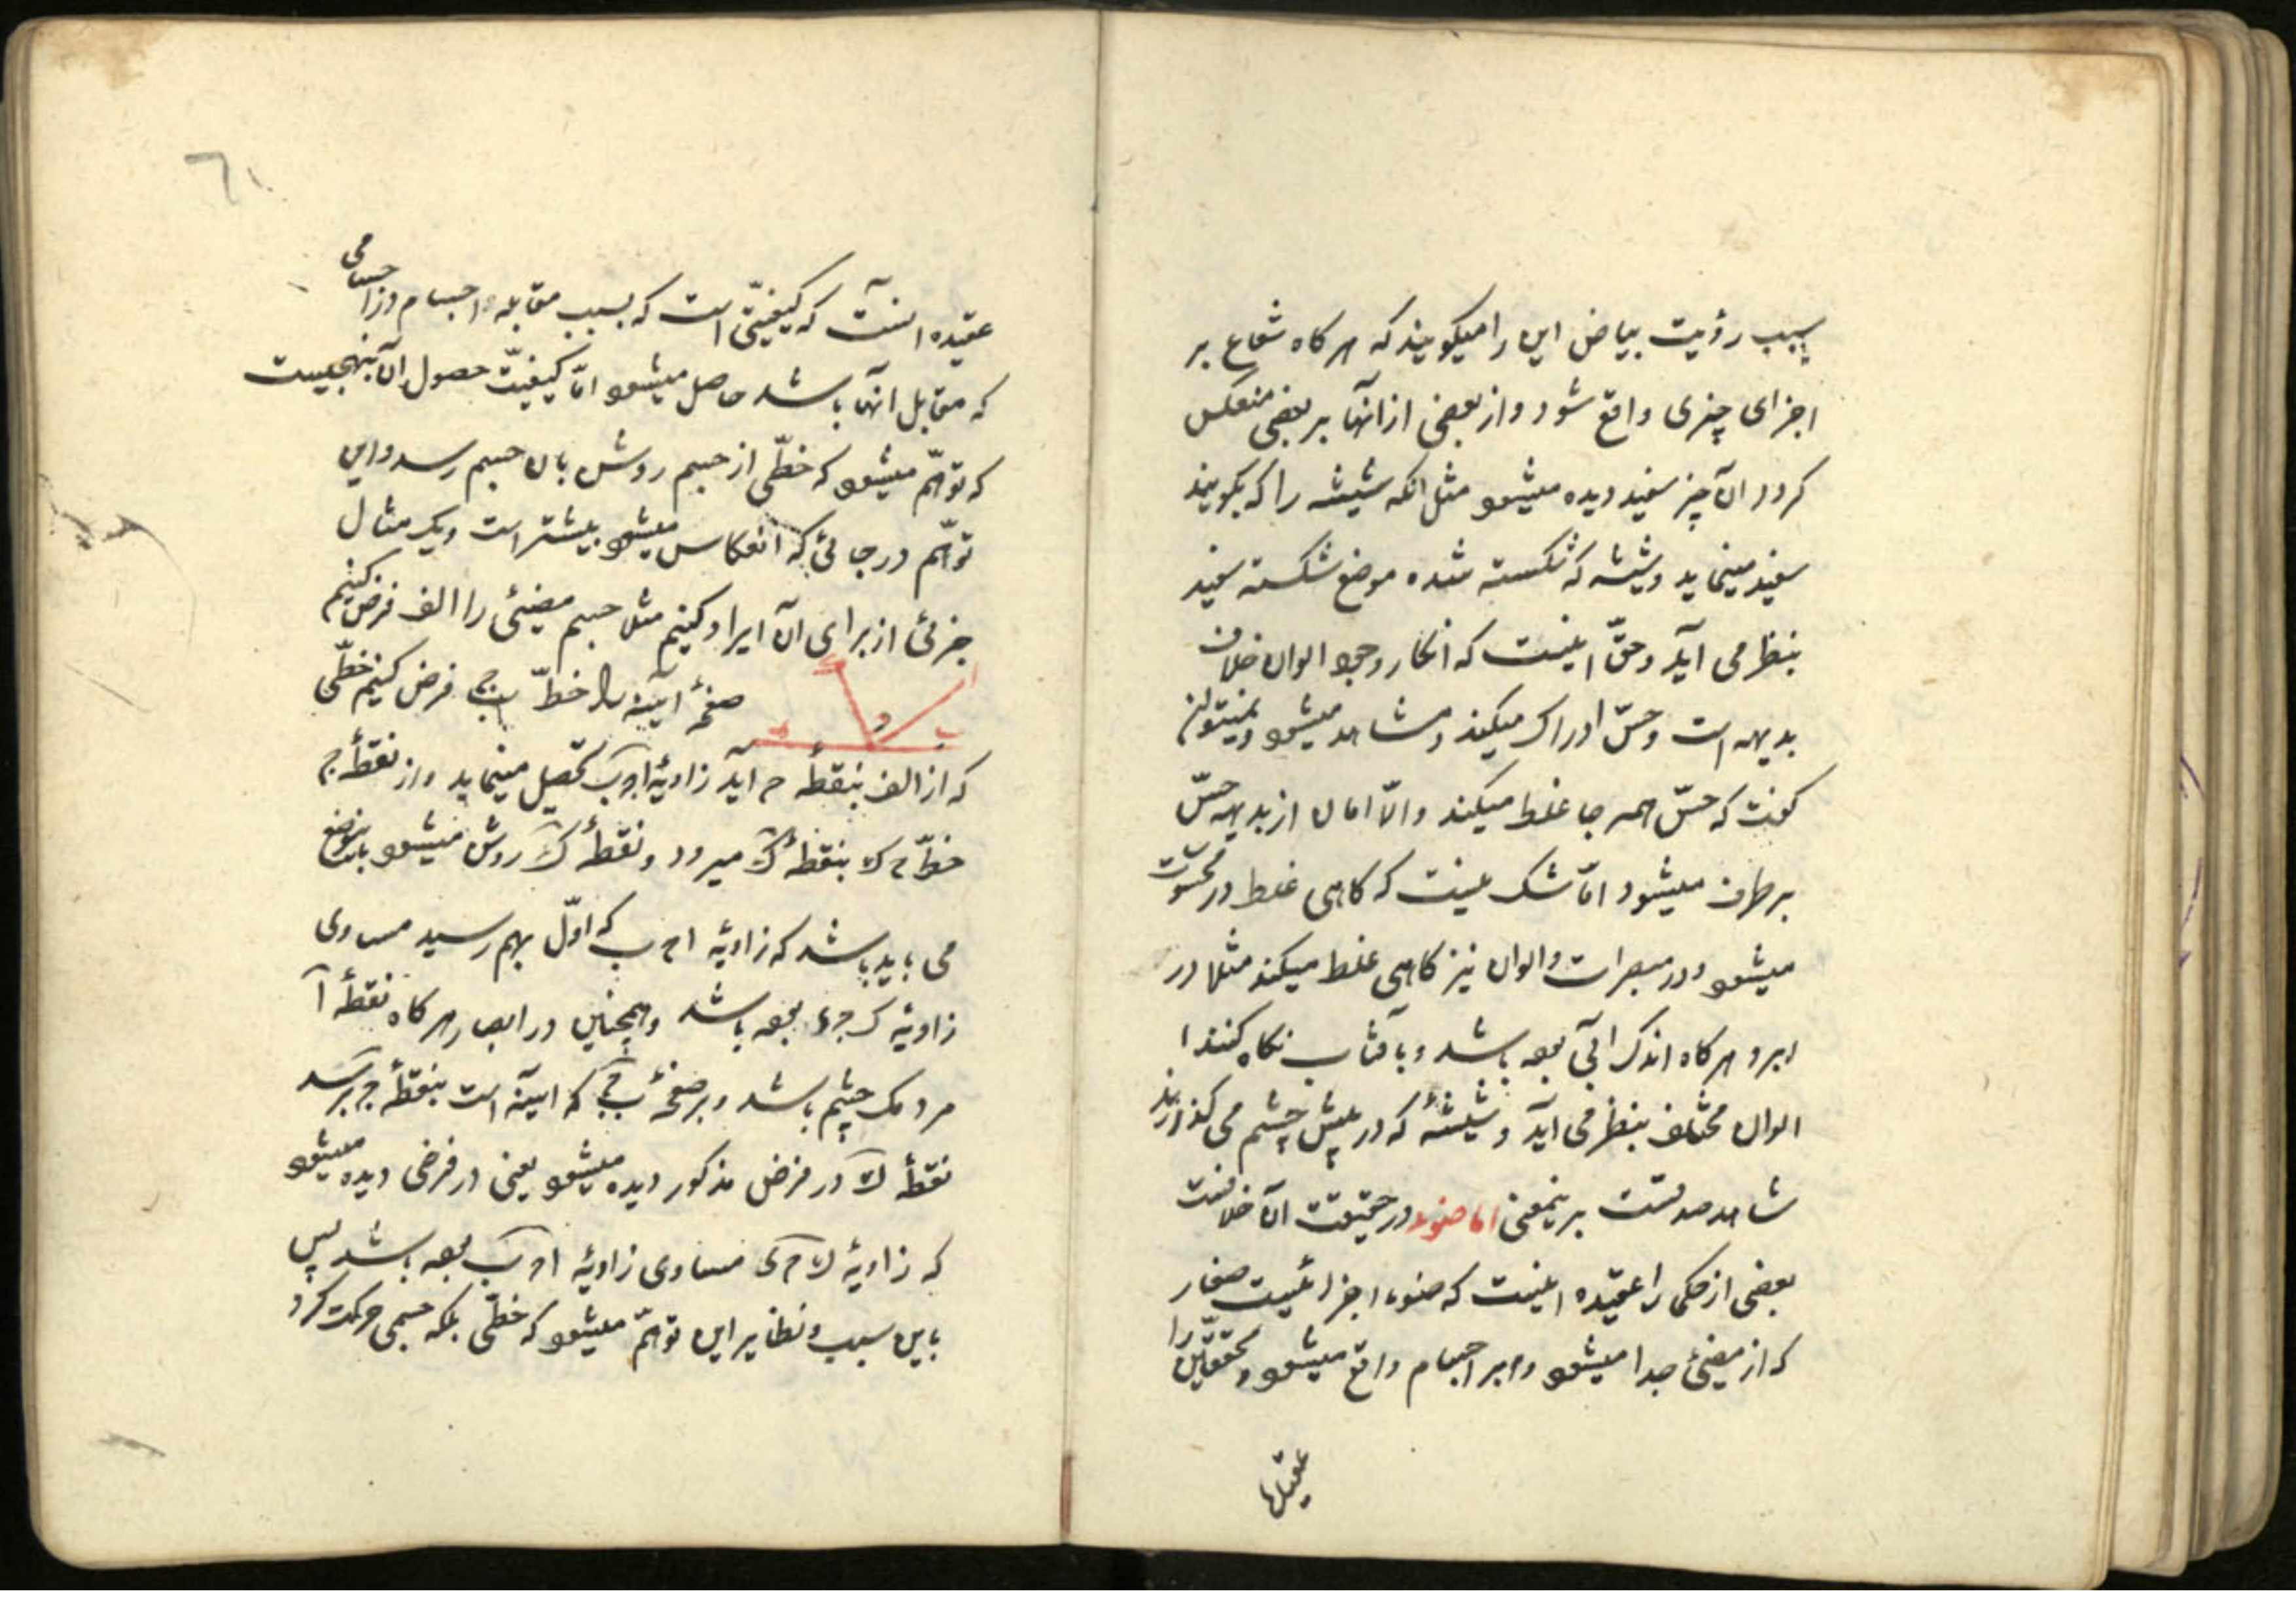 سبب رؤیت بیاض این را میکویند که هر کاه شعاع بر
اجزای چیزی واقع شود و از بعضی از انها بر بعضی منعکس
کردد ان چیز سفید دیده میشود مثل انکه شیشه را که بکویند
سفید مینماید و شیشه که شکسته شده موضع شکسته سفید
بنظر می آید و حقّ اینست که انکار وجود الوان خلاف
بدیهه است و حسّ ادراک میکند و مشاهد میشود و نمیتوان
کفت که حسّ همه جا غلط میکند و الّا امان از بدیهه حسّ
بر طرف میشود امّا شک نیست که کاهی غلط در محسوسات
میشود و در مبصرات و الوان نیز کاهی غلط میکند مثلا در
ابرو هر کاه اندک آبی بوده باشد و بآفتاب نکاه کنند
الوان مختلف بنظر می آید و شیشهٔ که در پیش چشم می کذارند
شاهد صدقست برینمعنی اما ضوء در حقیقت ان خلافست
بعضی از حکما را عقیده اینست که ضوء اجزائیست صغار
که از مضیئ جدا میشود و بر اجسام واقع میشود و محققین را
عقیده
٦١
عقیده انست که کیفیّتی است که بسبب مقابله اجسام در اجسامی
که مقابل انها باشد حاصل میشود امّا کیفیّت حصول ان بنهجیست
که توهّم میشود که خطّی از جسم روشن بان جسم رسد و این
توهّم در جائی که انعکاس میشود بیشتر است و یک مثال
جزئی از برای ان ایراد کنیم مثلا جسم مضیئی را الف فرض کنیم
صفحهٔ آینه را خطّ ب ج فرض کنیم خطّی
که از الف بنقطهٔ ح آید زاویهٔ ا ح ب تحصیل مینماید و از نقطهٔ ح
خطّ ح ک بنقطهٔ ک میرود و نقطهٔ ک روشن میشود باینوضع
می باید باشد که زاویهٔ ا ح ب که اوّل بهم رسید مساوی
زاویهٔ ک ح ء بوده باشد و همچنین در ابصار هر کاه نقطهٔ آ
مردمک چشم باشد و بر صفحهٔ ب ج که اینه است بنقطهٔ ح برسد
نقطهٔ ک در فرض مذکور دیده میشود یعنی در فرضی دیده میشود
که زاویهٔ ک ح ی مساوی زاویهٔ ا ح ب بوده باشد پس
باین سبب و نظایر این توهّم میشود که خطّی بلکه جسمی حرکت کرد